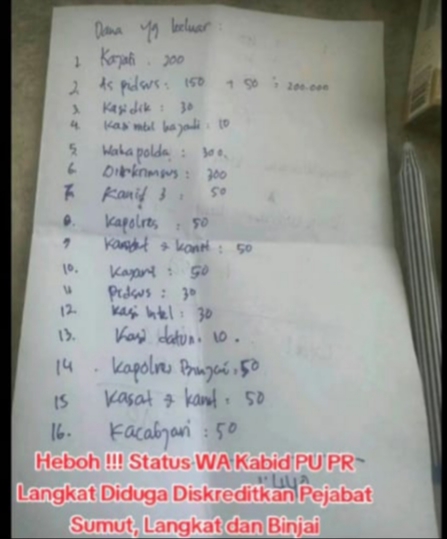 Dana yg keluar :
1. Kajati . 200
2. As pidsus : 150 + 50 : 200.000
3. Kasidik : 30
4. Kasi intel kajati : 10
5. Wakapolda : 300,
6. Dirkrimsus : 300
7. Kanit 3 : 50
8. Kapolres : 50
9 Kasat + kanit : 50
10. Kajari : 50
11 Pidsus : 30
12. Kasi intel : 30
13. Kasi datun. 10 .
14 . Kapolres Binjai : 50
15 Kasat + kanit : 50
16. Kacabjari : 50
Heboh !!! Status WA Kabid PU PR
Langkat Diduga Diskreditkan Pejabat
Sumut, Langkat dan Binjai